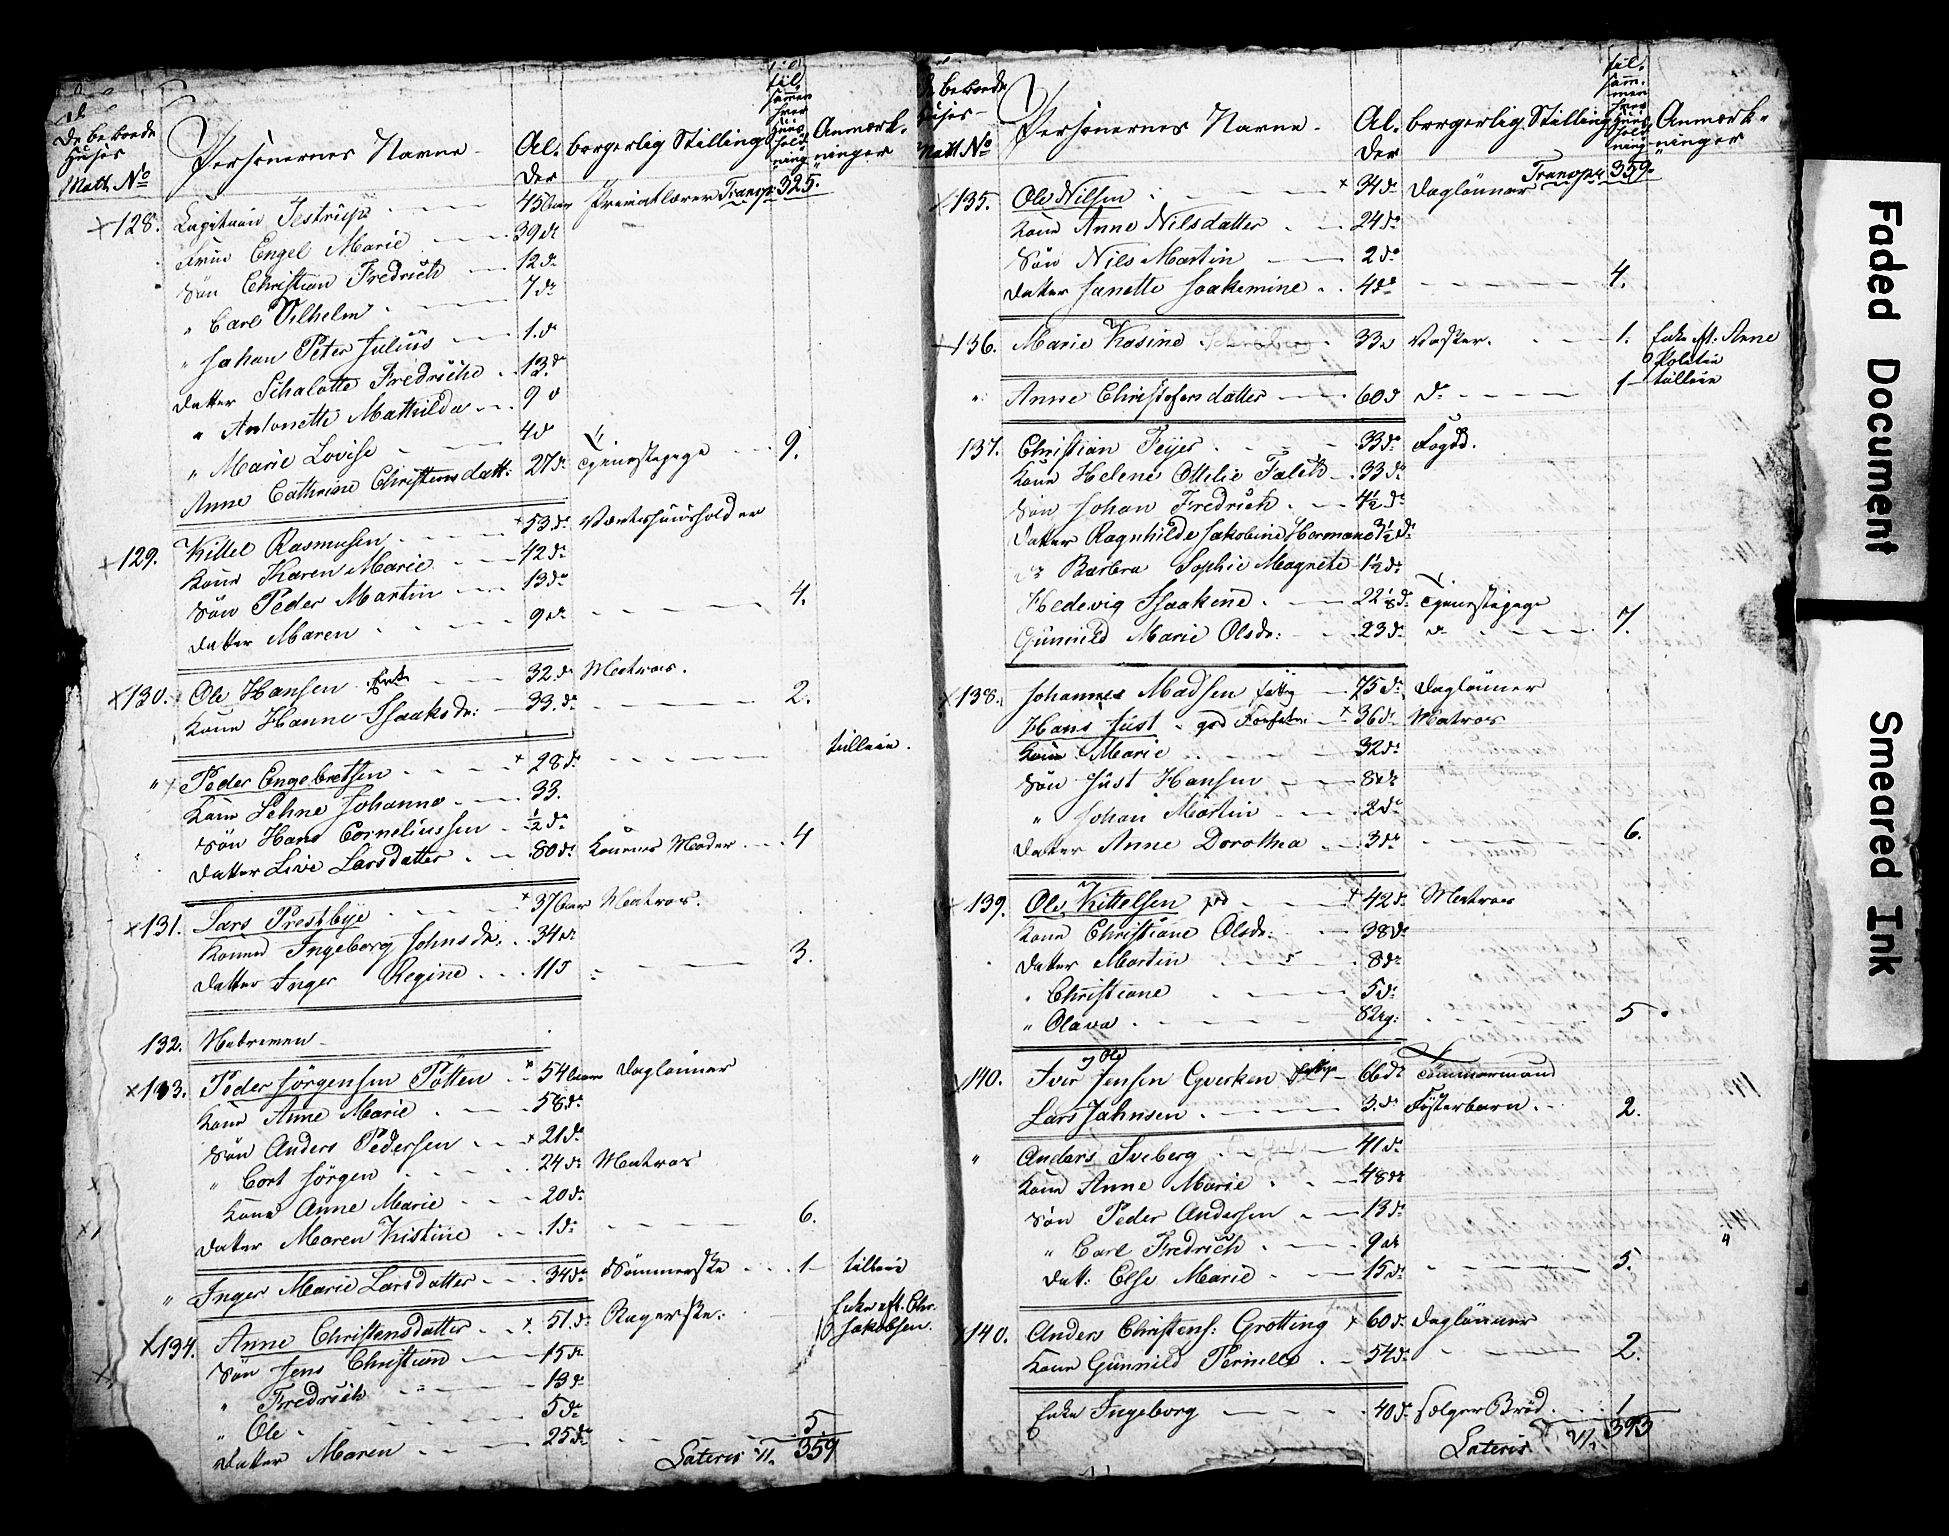 De beboede Huses Matr. No
Personernes Navne
Alder
borgerlig Stilling
tilsammen hver Huusholdning
Anmærkninger
Transp: 325.
128. Capitain Jestrup 45 Aar Privatlærer
Frue Engel Marie 39 do
Søn Christian Fredrich 12 do
" Carl Vilhelm 7 do
" Johan Peter Julius 1. do
Datter Schalotte Fredriche 13 do
" Antonette Mathilda 9 d
" Marie Lovise 4 d
Anne Cathrine Christensdatt: 27 do Tjenestepige 9.
129. Kittel Rasmusen 53 do Værtshuusholder
Kone Karen Marie 42 do
Søn Peder Martin 13 do
Datter Maren 9 do 4.
130. Ole Hansen 32 do Matros.
Kone Hanne Isaaksdr: 33. do 2.
" Peder Engebretsen 28 do tilleie.
Kone Lehne Johanna 33.
Søn Hans Corneliussen 1/2 do
Datter Live Larsdatter 80 do Konens Moder 4
131. Lars Prestbye 37 Aar Matros.
Konen Ingeborg Johnsdr. 34 do
Datter Inger Regine 11 d 3.
132. Nebremen
133. Peder Jørgensen Potten 54 Aar Daglønner
Kone Anne Marie 58 do
Søn Anders Pedersen 21 do
" Cort Jørgen 24 do Matros
Kone Anne Marie 20 do
Datter Maren Kistine 1 do 6.
" Inger Marie Larsdatter 34 do Sømmerske 1 tilleie
134. Anne Christensdatter 51. do Bagerske. Enke eft. Chr. Jakobsen.
Søn Jens Christian 15 do
" Fredrich 13 do
" Ole 5 do
Datter Maren 25 do 5
Lateris 359
De beboede Huses Matr No
Personernes Navne
Alder
borgerlig Stilling
tilsammen hver Huusholdning
Anmærkninger
Transp: 359.
135. Ole Nilsen 34 do Daglønner
Kone Anne Nilsdatter 24 do
Søn Nils Martin 2 do
Datter Janette Joakimine 4 do 4.
136. Marie Kosine 33 d Vasker. 1. Enke eft. Anne
tilleie
" Anne Christofersdatter 60 d do 1
137. Christian Feyer 33 do Fogd.
Kone Helene Ottilie Falch 33 do
Søn Johan Fredrich 4 1/2 do
Datter Ragnhilde Jakobine Hermana 3 1/2 do
do Barbra Sophie Magnete 1 1/2 do
Hedevig Isaakine 22 1/8 do Tjenestepige
Gunnild Marie Olsdr: 23 do do 7.
138. Johannes Madsen fattig 75 do Daglønner
Hans Just god Forfatn 36 do Matros
Kone Marie 32 do
Søn Just Hansen 8 do
" Johan Martin 2 do
Datter Anne Dorothea 3 do 6.
139. Ole Kittelsen god 42 do Matros
Kone Christiane Olsdr: 38 do
Datter Martin 8 do
" Christiane 5 do
" Olava 82 g: 5
140. Iver Jensen Gverken fattig 66 do Tømmermand
Lars Jahnsen 3. do Fosterbarn. 2.
" Anders Sveberg 41 do
Kone Anne Marie 48 do
Søn Peder Andersen 13 do
" Carl Fredrich 9 do
Datt: Else Marie 15 do 5.
140. Anders Christens: Grotting 60 do Daglønner
Kone Gunnild Pernille 54 do 2.
Enke Ingeborg 40 do sælger Brød 1
Lateris 393
Faded Document
Smeared Ink